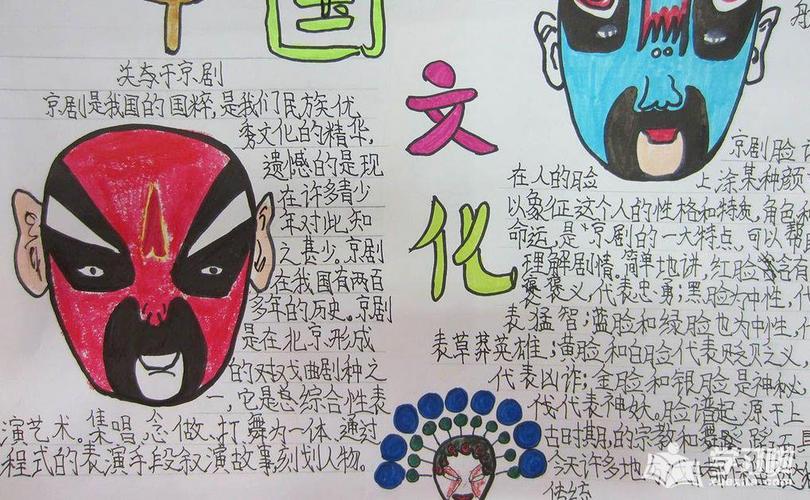 中国
文化
关夸于京剧
京剧是我国的国粹,是我们民族优
秀文化的精华,
遗憾的是现
在许多青少
年对此知
之甚少。京剧
在我国有两百
多年的历史。京剧
是在北京形成
的对戏曲剧种之
一,它是总综合性表
演艺术。集唱、念、做、打、舞为一体、通过
程式的表演手段叙演故事,刻划人物。
京剧脸
在人的脸上涂某种颜
以象征这个人的性格和特质,角色
命运,是京剧的一大特点,可以帮
理解剧情。简单地讲,红脸含有
褒义代表忠勇;黑脸为中性,代
表猛智;蓝脸和绿脸也为中性,
表草莽英雄;黄脸和白脸代表贬义
代表凶诈;金脸和银脸是神秘
代表神妖。脸谱起源于上
古时期的宗教和舞
今天许多地
传统
学习啦
xuexila.com